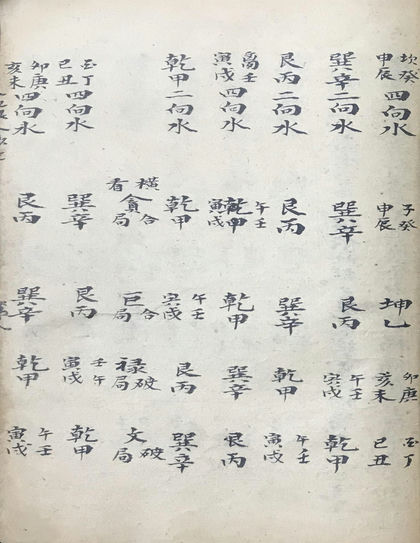 坎癸申辰四向水 子癸申辰 坤乙 卯庚亥未 丁巳丑
巽辛二向水 巽辛 艮丙 午壬寅戌 乾甲
艮丙二向水 艮丙 巽辛 乾甲 午壬寅戌
壬寅戌四向水 午壬乾甲寅戌 乾甲 巽辛 艮丙
乾甲二向水 乾甲 午壬寅戌 艮丙 巽辛
橫看 合貪局 合巨局 破禄局 破文局
丁巳丑四向水 巽辛 艮丙 壬午寅戌 乾甲
卯庚亥未四向水 艮丙 巽辛 乾甲 午壬寅戌